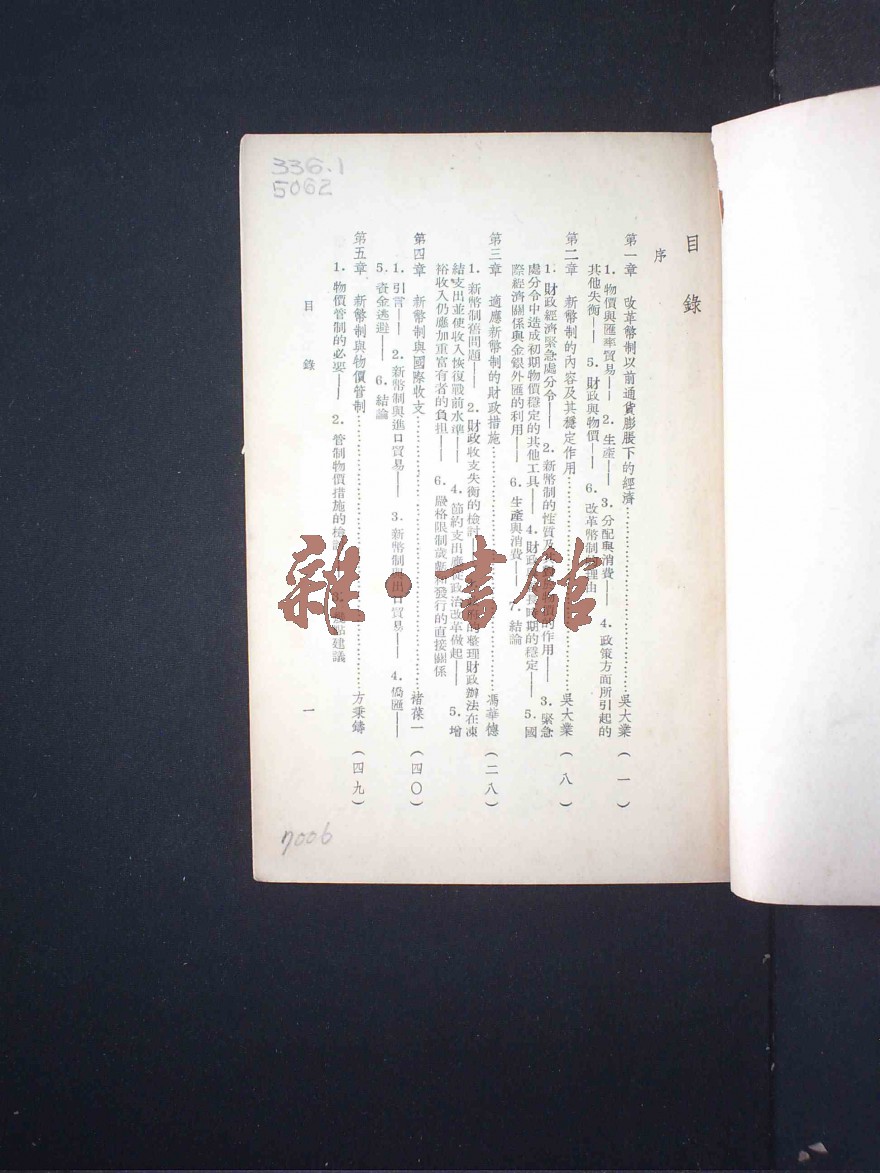 336.1
5062
目錄
序
第一章 改革幣制以前通貨膨脹下的經濟……吳大業(一)
1.物價與匯率貿易—— 2.生產—— 3.分配與消費—— 4.政策方面所引起的
其他失衡—— 5.財政與物價—— 6.改革幣制的理由
第二章 新幣制的內容及其穩定作用……吳大業(八)
1.財政經濟緊急處分令—— 2.新幣制的性質及 的作用—— 3.緊急
處分令中造成初期物價穩定的其他工具—— 4.財政 時期的穩定—— 5.國
際經濟關係與金銀外匯的利用—— 6.生產與消費—— 7.結論
第三章 適應新幣制的財政措施……馮華德(二八)
1.新幣制舊問題—— 2.財政收支失衡的檢討 的整理財政辦法在凍
結支出並使收入恢復戰前水準—— 4.節約支出應從政治改革做起—— 5.增
裕收入仍應加重富有者的負担—— 6.嚴格限制歲 發行的直接關係
第四章 新幣制與國際收支……褚葆一(四〇)
1.引言—— 2.新幣制與進口貿易—— 3.新幣制與出口貿易—— 4.僑匯——
5.資金逃避—— 6.結論
第五章 新幣制與物價管制……方秉鑄(四九)
1.物價管制的必要—— 2.管制物價措施的檢 點建議
目錄 一
7006
雜·書館